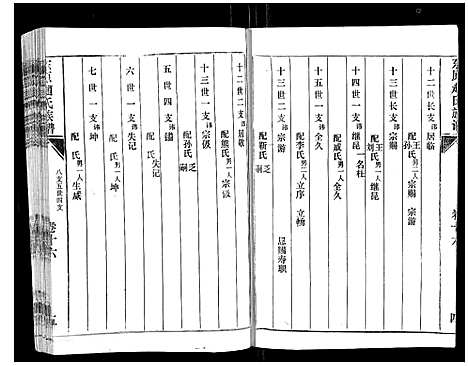 十二世長支諱居臨
配王孫氏男二人宗賜 宗游
十三世長支諱宗賜
配王劉氏男一人繼昆
十四世一支諱繼昆一名杜
配戚氏男一人全久
十五世一支諱全久
配李氏男二人立序 立幬
十三世二支諱宗游 恩賜壽職
配靳氏嗣乏
十二世二支諱居敬
配熊氏男一人宗儼
十三世一支諱宗儼
配孫氏嗣乏
五世四支諱鎰
配 氏失記
六世一支失記
配 氏男一人坤
七世一支諱坤
配 氏男一人生威
東原趙氏族譜
八支五世四支
卷十六
五